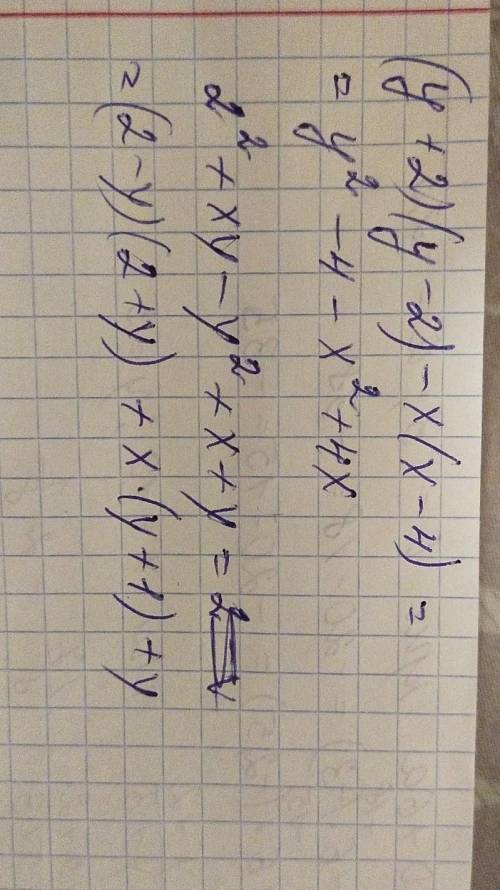 (y+2)(y-2)-x(x-4)=
=y²-4-x²+4x
2²+xy-y²+x+y=
=(2-y)(2+y)+x·(y+1)+y